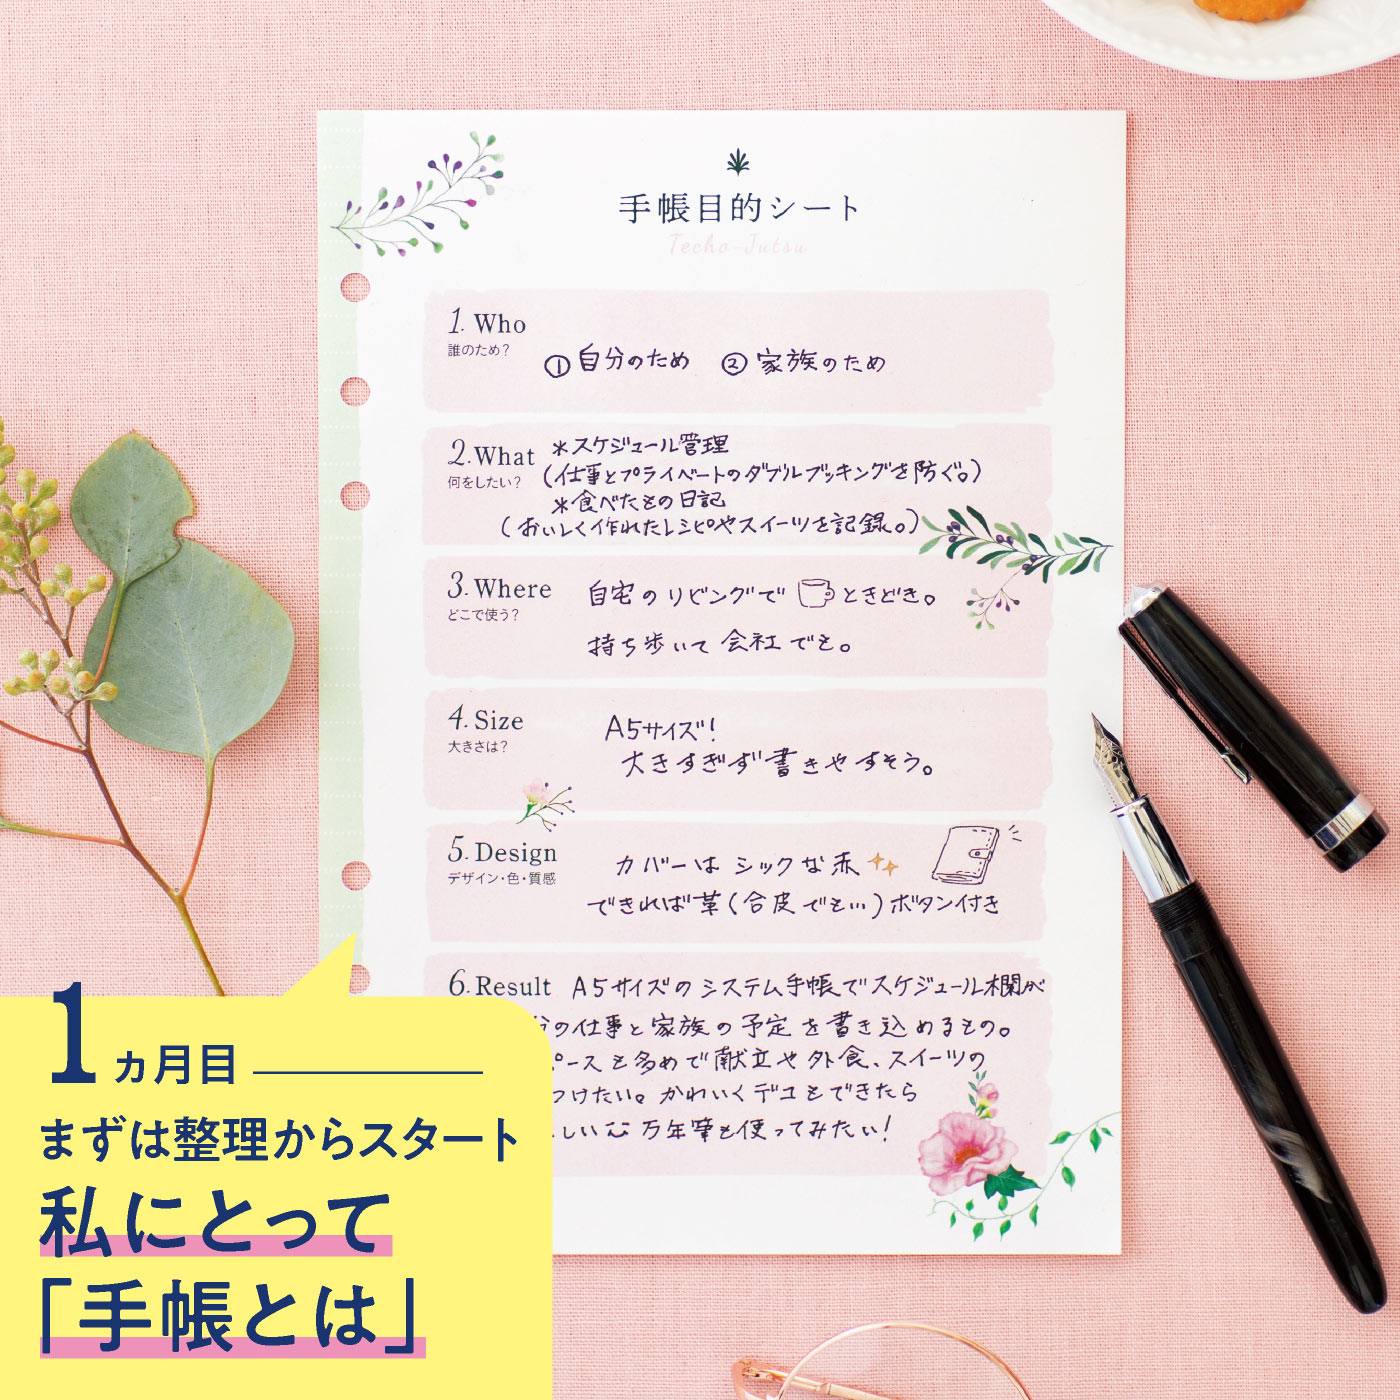 手帳目的シート
Techo-Jutsu
1. Who
誰のため？
①自分のため ②家族のため
2. What
何をしたい？
＊スケジュール管理
(仕事とプライベートのダブルブッキングを防ぐ。)
＊食べたもの日記
(おいしく作れたレシピやスイーツを記録。)
3. Where
どこで使う？
自宅のリビングで ときどき。
持ち歩いて会社でも。
4. Size
大きさは？
A5サイズ！
大きすぎず書きやすそう。
5. Design
デザイン・色・質感
カバーはシックな赤
できれば革(合皮でも…)ボタン付き
6. Result
A5サイズのシステム手帳でスケジュール欄が
分の仕事と家族の予定を書き込めるもの。
ペースも多めで献立や外食、スイーツの
つけたい。かわいくデコもできたら
しい心 万年筆も使ってみたい！
1ヵ月目
まずは整理からスタート
私にとって
「手帳とは」